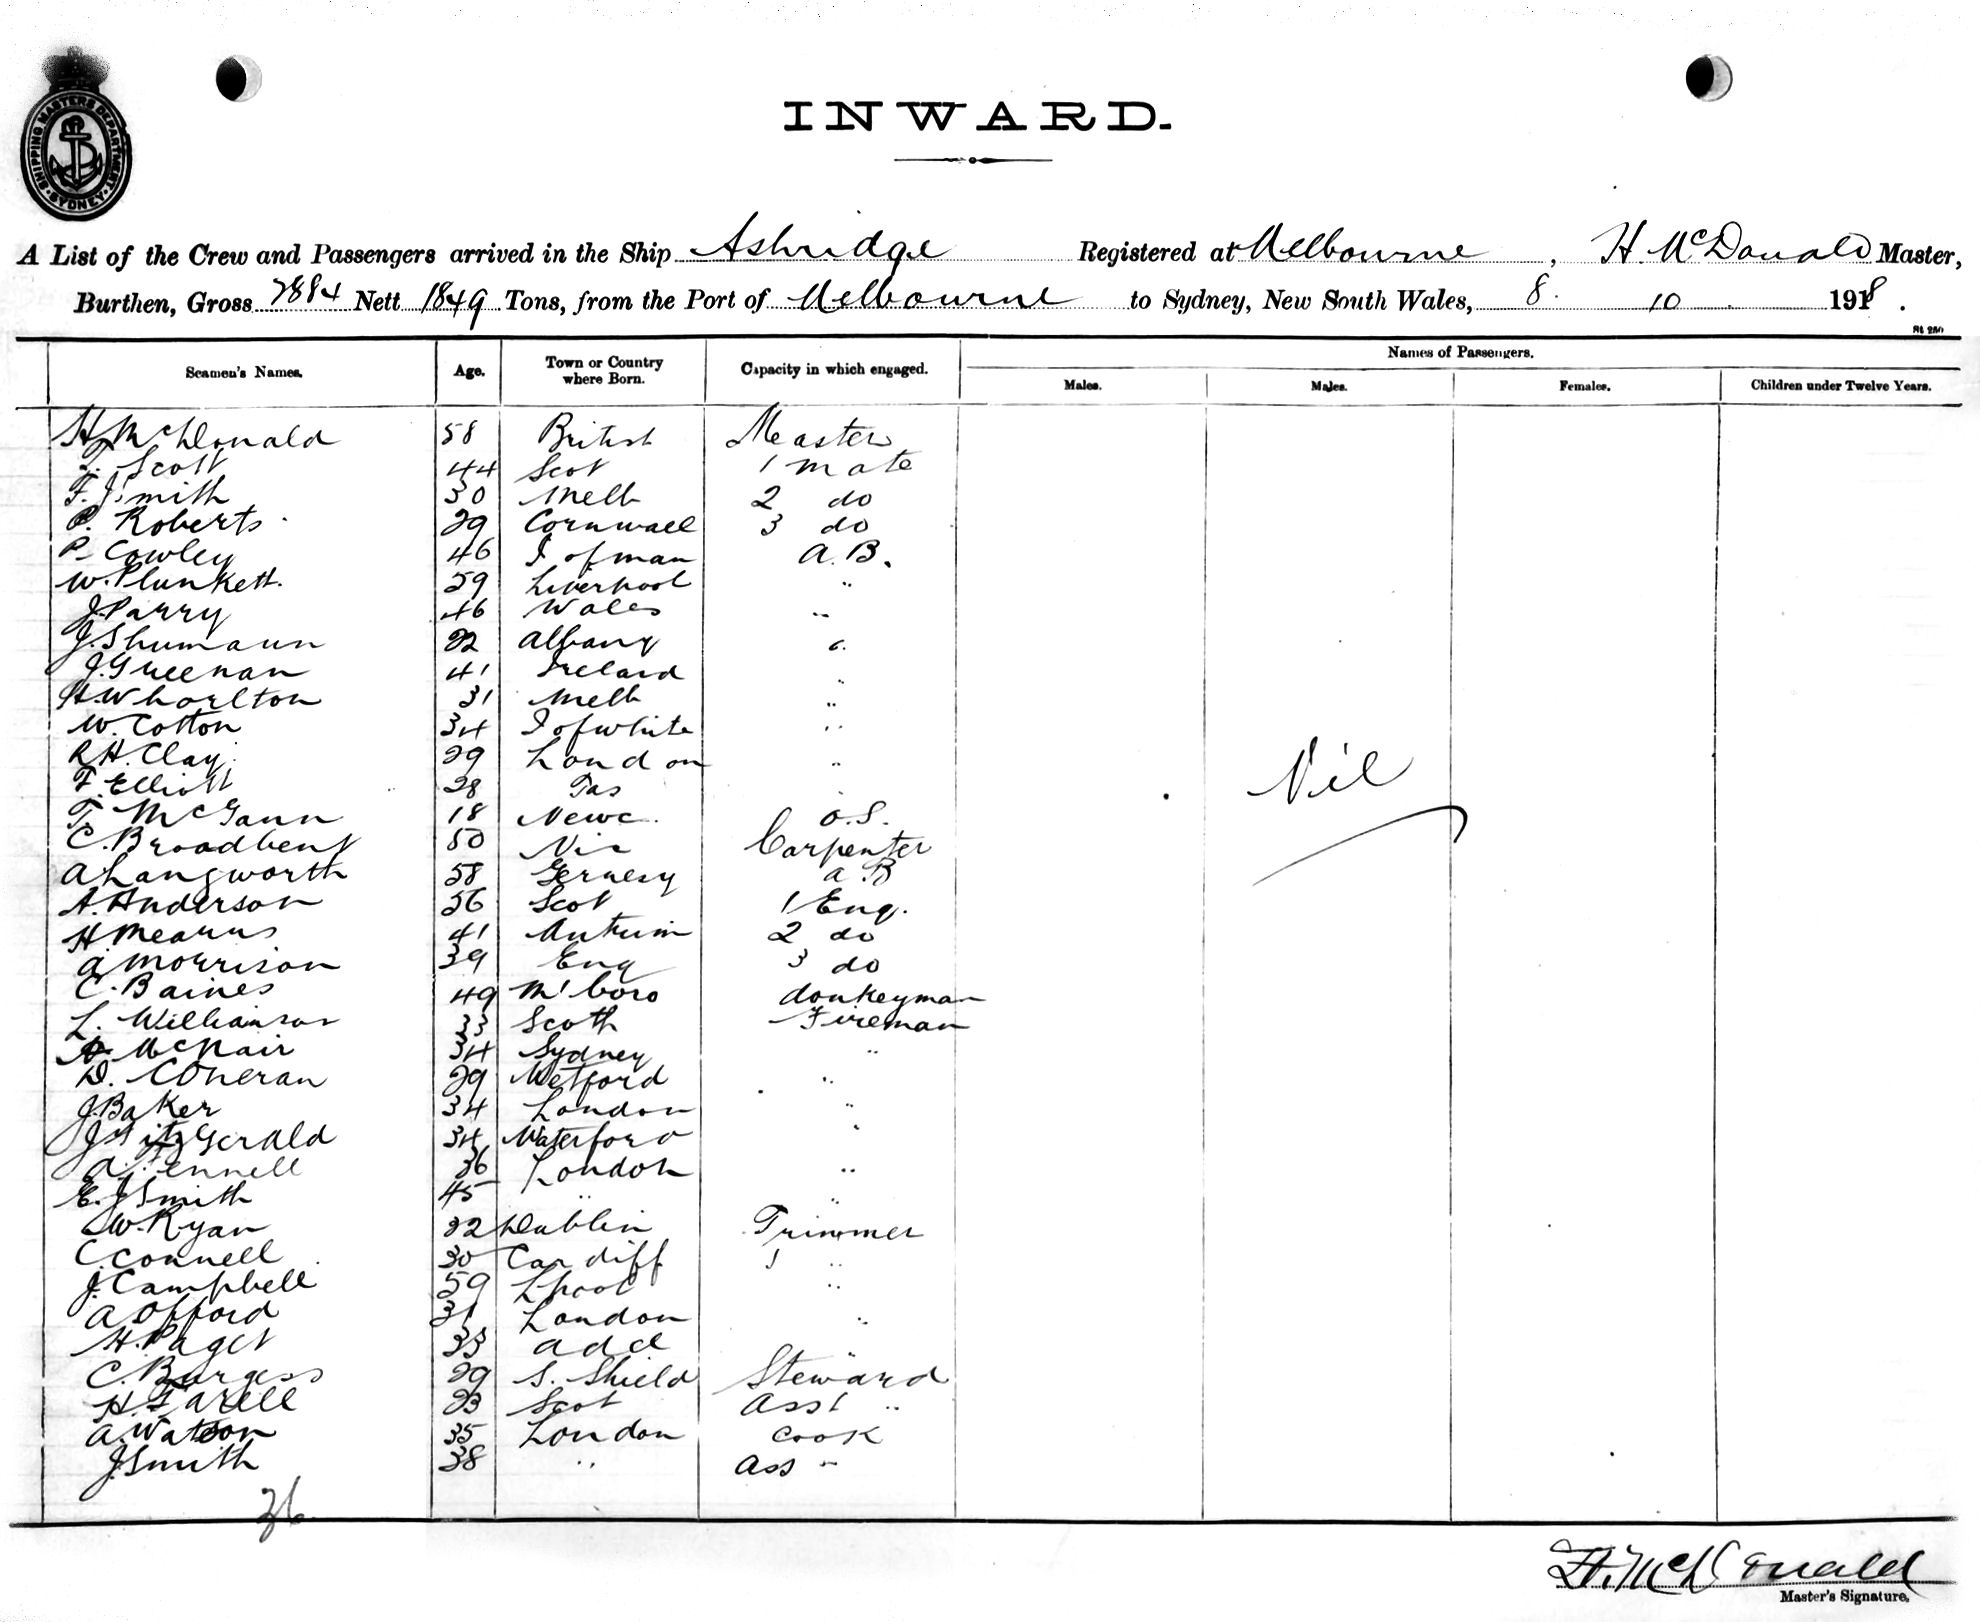 SHIPPING MASTERS DEPARTMENT
SYDNEY
INWARD.
A List of the Crew and Passengers arrived in the Ship Ashridge Registered at Melbourne, H. McDonald Master,
Burthen, Gross 2884 Nett 1849 Tons, from the Port of Melbourne to Sydney, New South Wales, 8. 10 1918.
Seamen's Names. Age. Town or Country where Born. Capacity in which engaged. Names of Passengers.
Males. Males. Females. Children under Twelve Years.
H. McDonald 58 British Measter
Scott 44 Scot 1 mate
F. Smith 30 Melb 2 do
P. Roberts 29 Cornwall 3 do
P. Cowley 46 I of man A.B.
W. Plunkett. 59 Liverpool "
J. Parry 46 Wales "
J. Shumann 22 Albany "
J. Greenan 41 Ireland "
H. Whorlton 31 Melb "
W. Cotton 34 I of white "
R.H. Clay 29 London "
F. Elliott 28 Tas
T. McGann 18 Newc. O.S.
C. Broadbent 50 Vic Carpenter
A Langworth 58 Gernesy A.B
A. Anderson 56 Scot 1 Eng.
H. Mearns 41 Antrim 2 do
A Morrison 39 Eng 3 do
C. Baines 49 M'boro donkeyman
L. Williamson 33 Scoth Fireman
McNair 34 Sydney "
D. Coneran 29 Metford "
J. Baker 34 London "
J FitzGerald 34 Waterford "
A. Fennell 36 London "
E. J Smith 45 " "
W. Ryan 22 Dublin Trimmer
C. Connell 30 Cardiff "
J. Campbell 59 Lpool "
A Offord 31 London "
H. Paget 33 Adel "
C. Burgess 29 S. Shield Steward
H. Farell 23 Scot Asst "
A. Watson 35 London Cook
J. Smith 38 " Ass "
Nil
36
H. McDonald
Master's Signature.